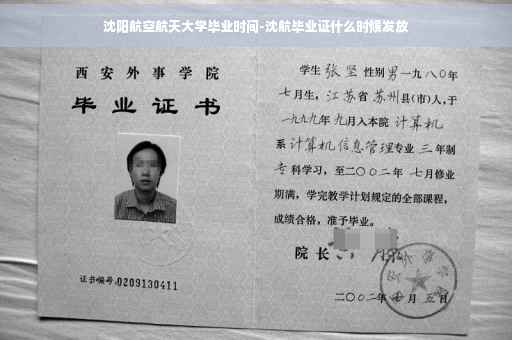 沈阳航空航天大学毕业时间-沈航毕业证什么时候发放
西安外事学院
毕业证书
证书编号:0209130411
学生 张坚 性别 男 一九八〇年
七月生，江苏省 苏州县(市)人，于
一九九九年 九月入本院 计算机
系 计算机信息管理专业 三 年制
专科学习，至二〇〇二年 七月修业
期满，学完教学计划规定的全部课程，
成绩合格，准予毕业。
院长
二〇〇二年 月 五日